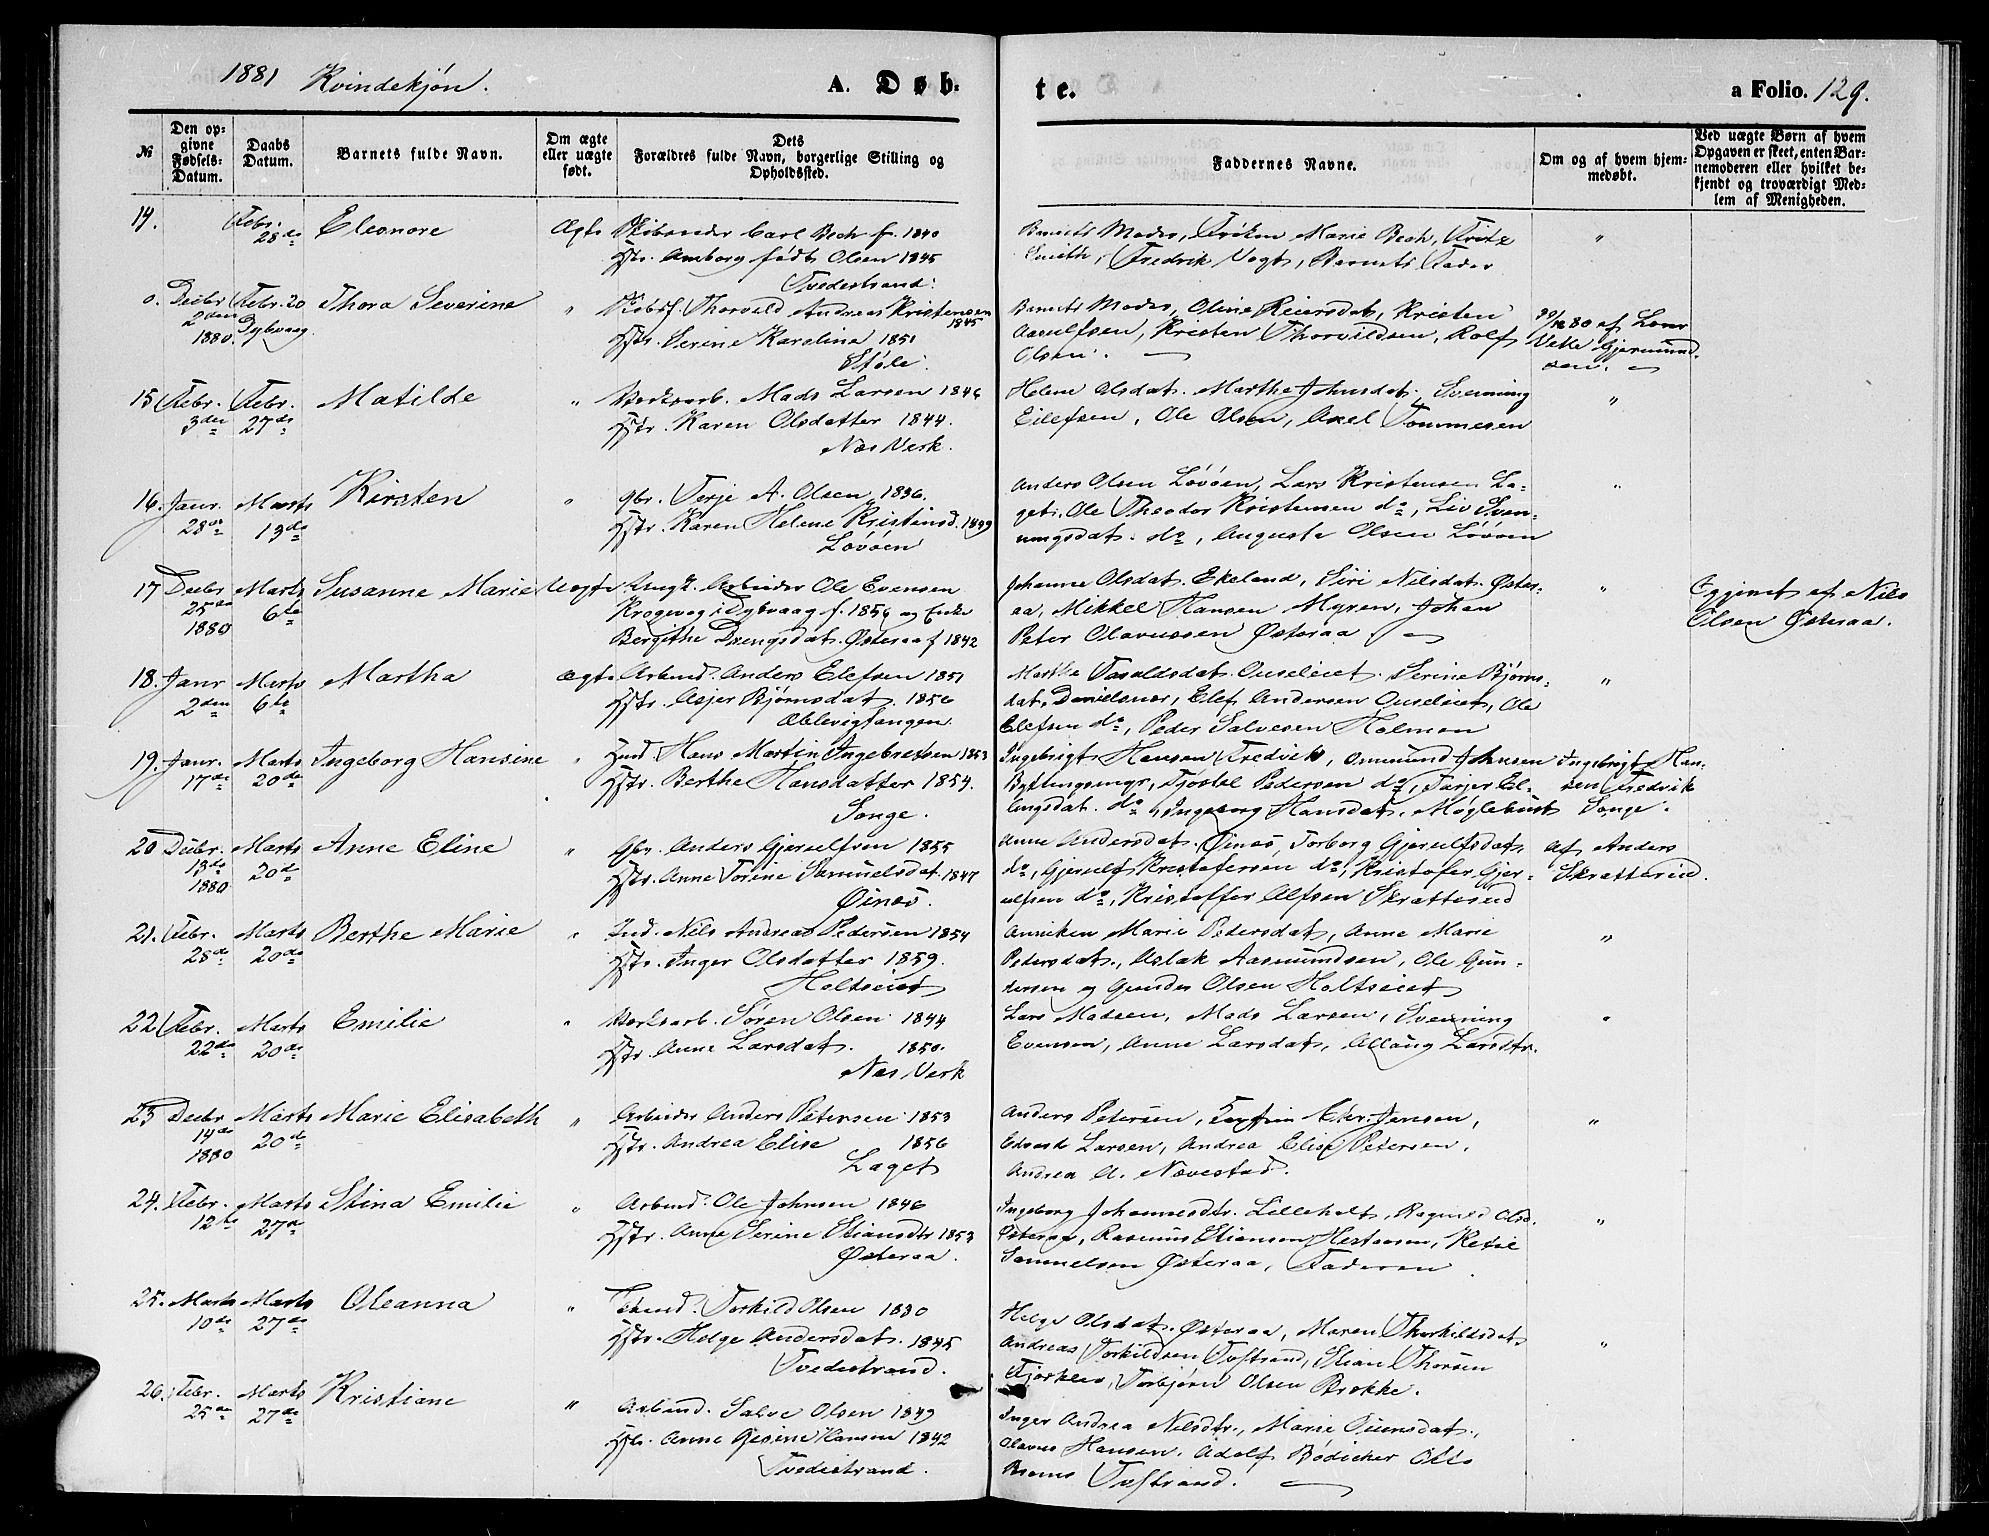 1881 Kvindekjøn.
A. Døb-
te.
a Folio. 129.
№
Den op-
givne
Fødsels-
Datum.
Daabs
Datum.
Barnets fulde Navn.
Om ægte
eller uægte
født.
Dets
Forældres fulde Navn, borgerlige Stilling og
Opholdssted.
Faddernes Navne.
Om og af hvem hjem-
medøbt.
Ved uægte Børn af hvem
Opgaven er skeet, enten Bar-
nemoderen eller hvilket be-
kjendt og troværdigt Med-
lem af Menigheden.
14. Febr. 28de Eleonore Ægte Carl Bech f. 1840
Hstr. Amborg født Olsen 1845
Tvedestrand.
Barnets Moder, Frøken Marie Bech, Fritz
Smith, Fredrik Vogt, Barnets Fader
"
0. Decbr 2den 1880. Febr. 20 Dybvaag. Thora Severine " Thorvald Andreas Kristensen 1845
Hstr. Serine Karoline 1851
Støle.
Barnets Moder, Oline Reiersdat, Kristen
Aasulfsen, Kristen Thorvildsen, Rolf
Olsen.
af Lovr
Vette Gjermund-
sen.
15 Febr. 3die Febr. 27de Matilde " Verksarb. Mads Larsen 1846
Hstr. Karen Olsdatter 1844.
Næs Verk.
Helene Olsdat. Marthe Johnsdat. Svenning
Eilefsen, Ole Olsen, Axel Tommesen
"
16. Janr. 28de Marts 13de Kirsten " gbr. Terje A. Olsen 1836.
Hstr. Karen Helene Kristensd. 1839
Løvøen
Anders Olsen Løvøen, Lars Kristensen La-
get. Ole Theodor Kristensen do, Liv Sven-
ningsdat. do, Auguste Olsen Løvøen
"
17 Decbr 25de 1880 Marts 6te Susanne Marie Uægte Ungk. Arbeider Ole Evensen
Krogevog i Dybvaag f. 1854 og Enke
Bergithe Drengsdat. Østeraa f 1842
Johanne Olsdat. Ekeland, Siri Nilsdat. Øster-
aa, Mikkel Hansen Myren, Johan
Peter Olavussen Østeraa
"
Opgivet af Nils
Olsen Østeraa.
18. Janr 2den Marts 6te Martha Ægte Arbmd. Anders Elefsen 1851
Hstr. Asjer Bjørnsdat. 1856
Æblevigtangen.
Marthe Taraldsdat. Auseleiet. Serine Bjørns-
dat. Danielsnes, Elef Andersen Auseleiet, Ole
Elefsen do, Peder Salvesen Holmen
"
19. Janr. 17de Marts 20de Ingeborg Hansine " Hans Martin Ingebretsen 1853
Hstr. Berthe Hansdatter 1854.
Songe.
Ingebrigt Hansen Fredvik, Omund Johnsen
Byttingsmyr, Tjostel Pedersen do, Tarjer El-
lingsdat. do, Ingeborg Hansdat. Møglebust
Ingebrigt Han-
sen Fredvik
Songe.
20 Decbr. 13de 1880 Marts 20de Anne Eline " Gbr. Anders Gjerulfsen 1855
Hstr. Anne Torine Samuelsdat. 1847
Øinæs.
Anne Andersdat. Øinæs, Torborg Gjerulfsdat.
do, Gjerulf Kristofersen do, Kristofer Gjer-
ulfsen do, Kristoffer Alfsen Skretterud
af Anders
Skretterud.
21. Febr. 28de Marts 20de Berthe Marie " Ind. Nils Andreas Pedersen 1854
Hstr. Inger Olsdatter 1859.
Holtseiet
Anniken Marie Pedersdat, Anne Marie
Pedersdat., Aslak Aasmundsen, Ole Gun-
dersen og Gunder Olsen Holtseiet
"
22 Febr. 22de Marts 20de Emilie " Verksarb. Søren Olsen 1844
Hstr. Anne Larsdat. 1850.
Næs Verk
Lars Madsen, Mads Larsen, Svenning
Evensen, Anne Larsdat, Allaug Larsdtr.
"
23 Decbr 14de 1880 Marts 20de Marie Elisabeth " Arbeider Anders Petersen 1853
Hstr. Andrea Elise 1856
Laget
Anders Petersen, Torfin Chr. Jensen,
Edvard Larsen, Andrea Elise Petersen,
Andrea A. Nævestad.
"
24. Febr. 12te Marts 27de Stina Emilie " Arbmd. Ole Johnsen 1846
Hstr. Anne Serine Eliansdtr 1853
Østeraa.
Ingeborg Johannesdtr. Lilleholt, Ragnild Olsd.
Østeraa, Rasmus Eliansen Hestaasen, Ketil
Samuelsen Østeraa, Faderen
"
25. Marts 10de Marts 27de Oleanna " Torkild Olsen 1830
Hstr. Helge Andersdat. 1845
Tvedestrand.
Helge Olsdat. Østeraa, Maren Thorkildsdat.
Andreas Torkildsen Tvstrand, Elian Thorsen
Fjærkleiv, Torbjørn Olsen Brekke.
"
26. Febr. 25de Marts 27de Kristiane " Arbmd. Salve Olsen 1849
Hstr. Anne Gesine Hansen 1842
Tvedestrand.
Inger Andrea Nilsdtr., Marie
Olavus Hansen, Adolf Bødicher Otto
Tvstrand.